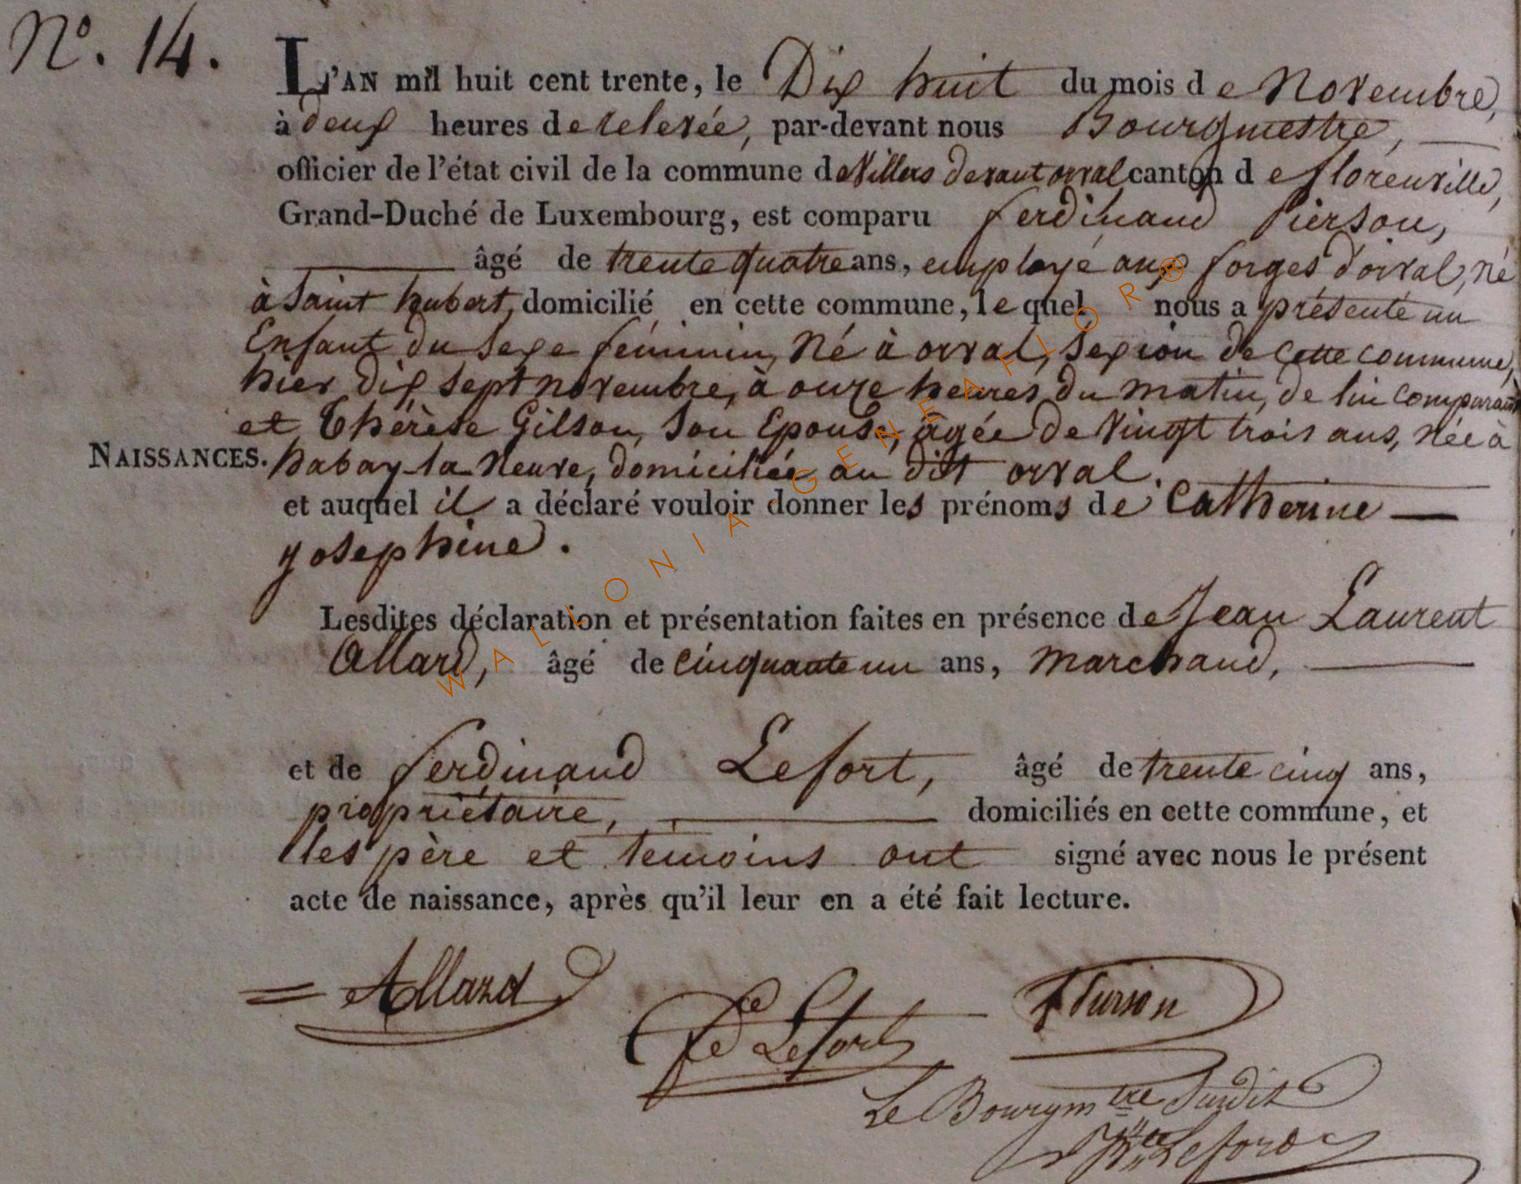 N.º 14.
L'AN mil huit cent trente, le Dix huit du mois de Novembre,
à deux heures de relevée, par-devant nous Bourgmestre,
officier de l'état civil de la commune de Villers devant orval canton de florenville,
Grand-Duché de Luxembourg, est comparu ferdinand Pierson,
âgé de trente quatre ans, employé aux forges d'orval, né
à Saint hubert, domicilié en cette commune, lequel nous a présenté un
Enfant du Sexe féminin, Né à orval, Sexion de Cette commune,
hier dix sept novembre, à onze heures du matin, de lui comparant
et Thérèse Gilson, Son Epouse, âgée de Vingt trois ans, née à
NAISSANCES. habay-la Neuve, domiciliée au dit orval.
et auquel il a déclaré vouloir donner les prénoms de Catherine
josephine.
Lesdites déclaration et présentation faites en présence de Jean Laurent
Allard, âgé de cinquante un ans, Marchand,
et de ferdinand Lefort, âgé de trente cinq ans,
propriétaire, domiciliés en cette commune, et
les père et témoins ont signé avec nous le présent
acte de naissance, après qu'il leur en a été fait lecture.
Allard
fd Lefort
fPierson
Le Bourgmtre Susdit
Lefort
WALLONIA-GENEAFLOR®